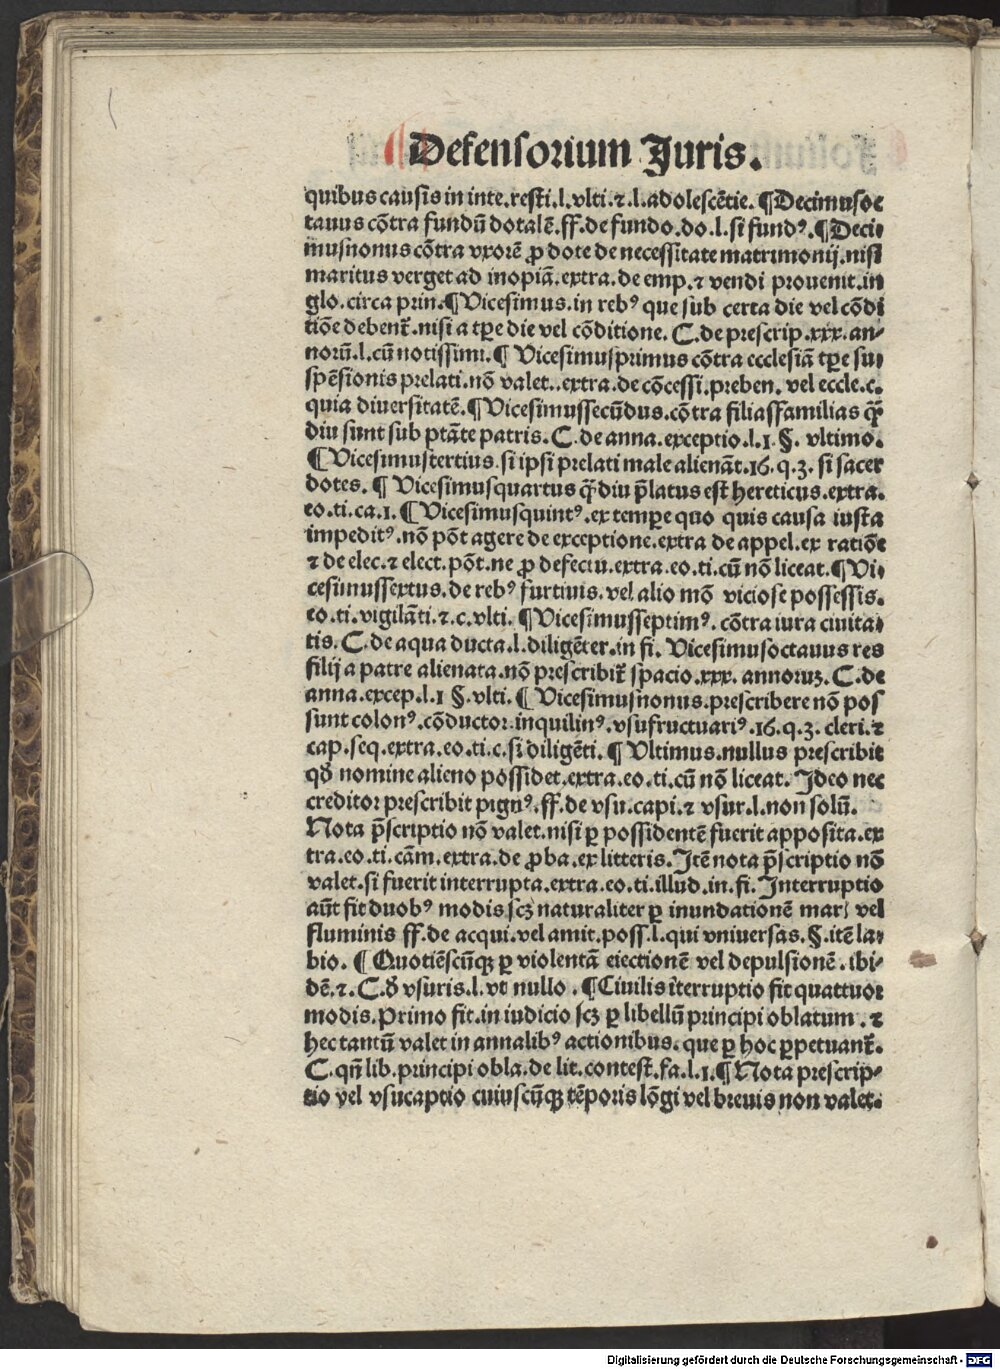 Defensorium Juris.
quibus causis in inte.resti.l.vlti.⁊.l.adolescẽtie.¶Decimusoc
tauus cõtra fundũ dotalẽ.ff.de fundo.do.l.si fundꝰ.¶Deci
musnonus cõtra vxorẽ ꝓ dote de necessitate matrimonij.nisi
maritus verget ad inopiã.extra.de emp.⁊ vendi prouenit.in
glo.circa prin.¶Vicesimus.in rebꝰ que sub certa die vel cõdi
tiõe debent᷒.nisi a tp̃e die vel cõditione. C.de prescrip.xxx.an-
norũ.l.cũ notissimi.¶ Vicesimusprimus cõtra ecclesiã tp̃e su-
spẽsionis prelati.nõ valet..extra.de cõcessi.preben. vel eccle.c.
quia diuersitatẽ.¶Vicesimussecũdus.cõtra filiasfamilias q̃ꝫ
diu sunt sub ptãte patris. C.de anna.exceptio.l.1.§. vltimo.
¶Vicesimustertius.si ipsi prelati male alienãt.16.q.3. si sacer
dotes.¶ Vicesimusquartus q̃ꝫ diu p̃latus est hereticus.extra.
eo.ti.ca.1.¶Vicesimusquintꝰ.ex tempe quo quis causa iusta
impeditꝰ.nõ põt agere de exceptione.extra de appel.ex ratiõe
⁊ de elec.⁊ elect.põt.ne ꝓ defectu.extra.eo.ti.cũ nõ liceat.¶Vi-
cesimussextus.de rebꝰ furtiuis.vel alio mõ viciose possessis.
eo.ti.vigilãti.⁊.c.vlti.¶Vicesimusseptimꝰ.cõtra iura ciuita-
tis. C.de aqua ducta.l.diligẽter.in fi. Vicesimusoctauus res
filij a patre alienata.nõ prescribit᷒ spacio.xxx. annoruꝫ. C.de
anna.excep.l.1 §.vlti.¶Vicesimusnonus.prescribere nõ pos
sunt colonꝰ.cõductor.inquilinꝰ.vsufructuariꝰ.16.q.3. cleri.⁊
cap.seq.extra.eo.ti.c.si diligẽti.¶Vltimus.nullus prescribit
qđ nomine alieno possidet.extra.eo.ti.cũ nõ liceat. Ideo nec
creditor prescribit pignꝰ.ff.de vsu.capi.⁊ vsur.l.non solũ.
Nota p̃scriptio nõ valet.nisi ꝑ possidentẽ fuerit apposita.ex
tra.eo.ti.cãm.extra.de ꝓba.ex litteris.Itẽ nota p̃scriptio nõ
valet.si fuerit interrupta.extra.eo.ti.illud.in.fi.Interruptio
aũt fit duobꝰ modis.scꝫ naturaliter ꝑ inundationẽ maris vel
fluminis ff.de acqui.vel amit.poss.l.qui vniuersas.§.itẽ la-
bio.¶Quotiẽscũqꝫ ꝑ violentã eiectionẽ vel depulsionẽ.ibi-
dẽ.⁊.C.đ vsuris.l.vt nullo.¶Ciuilis ĩterruptio fit quattuor
modis.Primo fit.in iudicio scꝫ ꝑ libellũ principi oblatum.⁊
hec tantũ valet in annalibꝰ actionibus.que ꝑ hoc ꝑpetuant᷒.
C.qñ lib.principi obla.de lit.contest.fa.l.1.¶Nota prescrip-
tio vel vsucaptio cuiuscũqꝫ tẽporis lõgi vel breuis non valet.
Digitalisierung gefördert durch die Deutsche Forschungsgemeinschaft - DFG